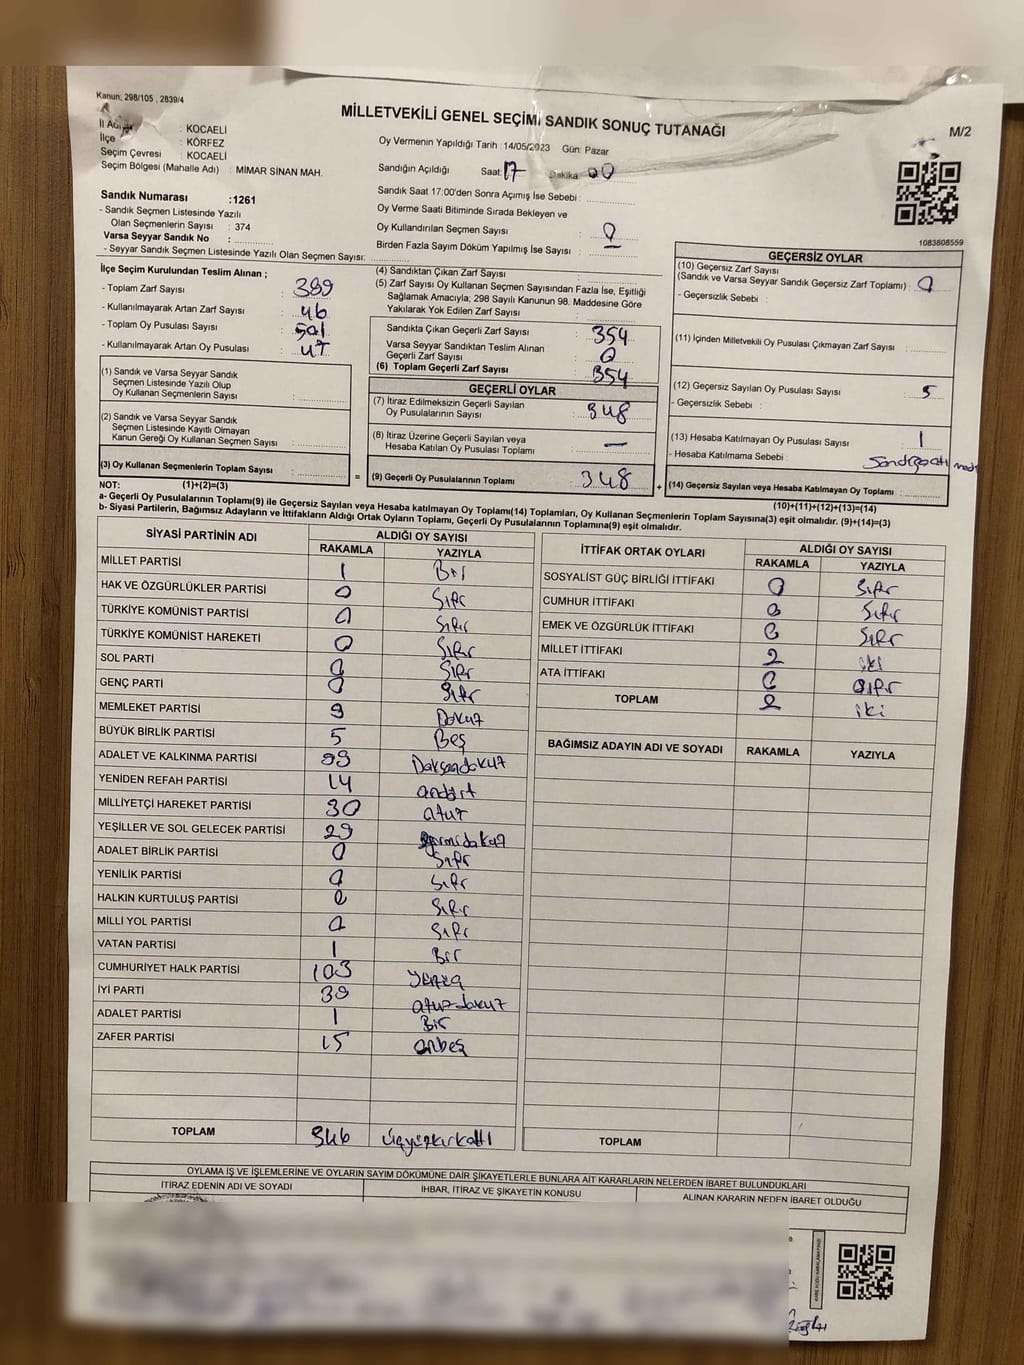 Kanun; 298/105 , 2839/4
MİLLETVEKİLİ GENEL SEÇİMİ SANDIK SONUÇ TUTANAĞI
M/2
İl Adı : KOCAELİ
İlçe : KÖRFEZ
Seçim Çevresi : KOCAELİ
Seçim Bölgesi (Mahalle Adı) : MİMAR SİNAN MAH.
Oy Vermenin Yapıldığı Tarih : 14/05/2023 Gün: Pazar
Sandığın Açıldığı Saat: 17 Dakika 00
Sandık Saat 17:00'den Sonra Açımış İse Sebebi :
Oy Verme Saati Bitiminde Sırada Bekleyen ve
Oy Kullandırılan Seçmen Sayısı : 0
Birden Fazla Sayım Döküm Yapılmış İse Sayısı :
1083808559
Sandık Numarası :1261
- Sandık Seçmen Listesinde Yazılı
Olan Seçmenlerin Sayısı : 374
Varsa Seyyar Sandık No :
- Seyyar Sandık Seçmen Listesinde Yazılı Olan Seçmen Sayısı:
İlçe Seçim Kurulundan Teslim Alınan ;
- Toplam Zarf Sayısı : 399
- Kullanılmayarak Artan Zarf Sayısı : 46
- Toplam Oy Pusulası Sayısı : 501
- Kullanılmayarak Artan Oy Pusulası : 47
(1) Sandık ve Varsa Seyyar Sandık
Seçmen Listesinde Yazılı Olup
Oy Kullanan Seçmenlerin Sayısı :
(2) Sandık ve Varsa Seyyar Sandık
Seçmen Listesinde Kayıtlı Olmayan
Kanun Gereği Oy Kullanan Seçmen Sayısı :
(3) Oy Kullanan Seçmenlerin Toplam Sayısı :
(4) Sandıktan Çıkan Zarf Sayısı :
(5) Zarf Sayısı Oy Kullanan Seçmen Sayısından Fazla İse, Eşitliği
Sağlamak Amacıyla; 298 Sayılı Kanunun 98. Maddesine Göre
Yakılarak Yok Edilen Zarf Sayısı :
Sandıkta Çıkan Geçerli Zarf Sayısı : 354
Varsa Seyyar Sandıktan Teslim Alınan
Geçerli Zarf Sayısı : 0
(6) Toplam Geçerli Zarf Sayısı : 354
GEÇERLİ OYLAR
(7) İtiraz Edilmeksizin Geçerli Sayılan
Oy Pusulalarının Sayısı : 348
(8) İtiraz Üzerine Geçerli Sayılan veya
Hesaba Katılan Oy Pusulası Toplamı : —
= (9) Geçerli Oy Pusulalarının Toplamı : 348 +
GEÇERSİZ OYLAR
(10) Geçersiz Zarf Sayısı
(Sandık ve Varsa Seyyar Sandık Geçersiz Zarf Toplamı) : 0
- Geçersizlik Sebebi :
(11) İçinden Milletvekili Oy Pusulası Çıkmayan Zarf Sayısı :
(12) Geçersiz Sayılan Oy Pusulası Sayısı : 5
- Geçersizlik Sebebi :
(13) Hesaba Katılmayan Oy Pusulası Sayısı : 1
- Hesaba Katılmama Sebebi :
(14) Geçersiz Sayılan veya Hesaba Katılmayan Oy Toplamı :
NOT: (1)+(2)=(3)
(10)+(11)+(12)+(13)=(14)
a- Geçerli Oy Pusulalarının Toplamı(9) ile Geçersiz Sayılan veya Hesaba katılmayan Oy Toplamı(14) Toplamları, Oy Kullanan Seçmenlerin Toplam Sayısına(3) eşit olmalıdır. (9)+(14)=(3)
b- Siyasi Partilerin, Bağımsız Adayların ve İttifakların Aldığı Ortak Oyların Toplamı, Geçerli Oy Pusulalarının Toplamına(9) eşit olmalıdır.
SİYASİ PARTİNİN ADI ALDIĞI OY SAYISI
RAKAMLA YAZIYLA
MİLLET PARTİSİ 1 Bir
HAK VE ÖZGÜRLÜKLER PARTİSİ 0 Sıfır
TÜRKİYE KOMÜNİST PARTİSİ 0 Sıfır
TÜRKİYE KOMÜNİST HAREKETİ 0 Sıfır
SOL PARTİ 0 Sıfır
GENÇ PARTİ 0 Sıfır
MEMLEKET PARTİSİ 9 Dokuz
BÜYÜK BİRLİK PARTİSİ 5 Beş
ADALET VE KALKINMA PARTİSİ 99 Doksandokuz
YENİDEN REFAH PARTİSİ 14 ondört
MİLLİYETÇİ HAREKET PARTİSİ 30 otuz
YEŞİLLER VE SOL GELECEK PARTİSİ 29 yirmidokuz
ADALET BİRLİK PARTİSİ 0 Sıfır
YENİLİK PARTİSİ 0 Sıfır
HALKIN KURTULUŞ PARTİSİ 0 Sıfır
MİLLİ YOL PARTİSİ 0 Sıfır
VATAN PARTİSİ 1 Bir
CUMHURİYET HALK PARTİSİ 103 yüzüç
İYİ PARTİ 39 otuzdokuz
ADALET PARTİSİ 1 Bir
ZAFER PARTİSİ 15 onbeş
TOPLAM 346 üçyüzkırkaltı
İTTİFAK ORTAK OYLARI ALDIĞI OY SAYISI
RAKAMLA YAZIYLA
SOSYALİST GÜÇ BİRLİĞİ İTTİFAKI 0 Sıfır
CUMHUR İTTİFAKI 0 Sıfır
EMEK VE ÖZGÜRLÜK İTTİFAKI 0 Sıfır
MİLLET İTTİFAKI 2 iki
ATA İTTİFAKI 0 Sıfır
TOPLAM 2 iki
BAĞIMSIZ ADAYIN ADI VE SOYADI RAKAMLA YAZIYLA
TOPLAM
OYLAMA İŞ VE İŞLEMLERİNE VE OYLARIN SAYIM DÖKÜMÜNE DAİR ŞİKAYETLERLE BUNLARA AİT KARARLARIN NELERDEN İBARET BULUNDUKLARI
İTİRAZ EDENİN ADI VE SOYADI İHBAR, İTİRAZ VE ŞİKAYETİN KONUSU ALINAN KARARIN NEDEN İBARET OLDUĞU